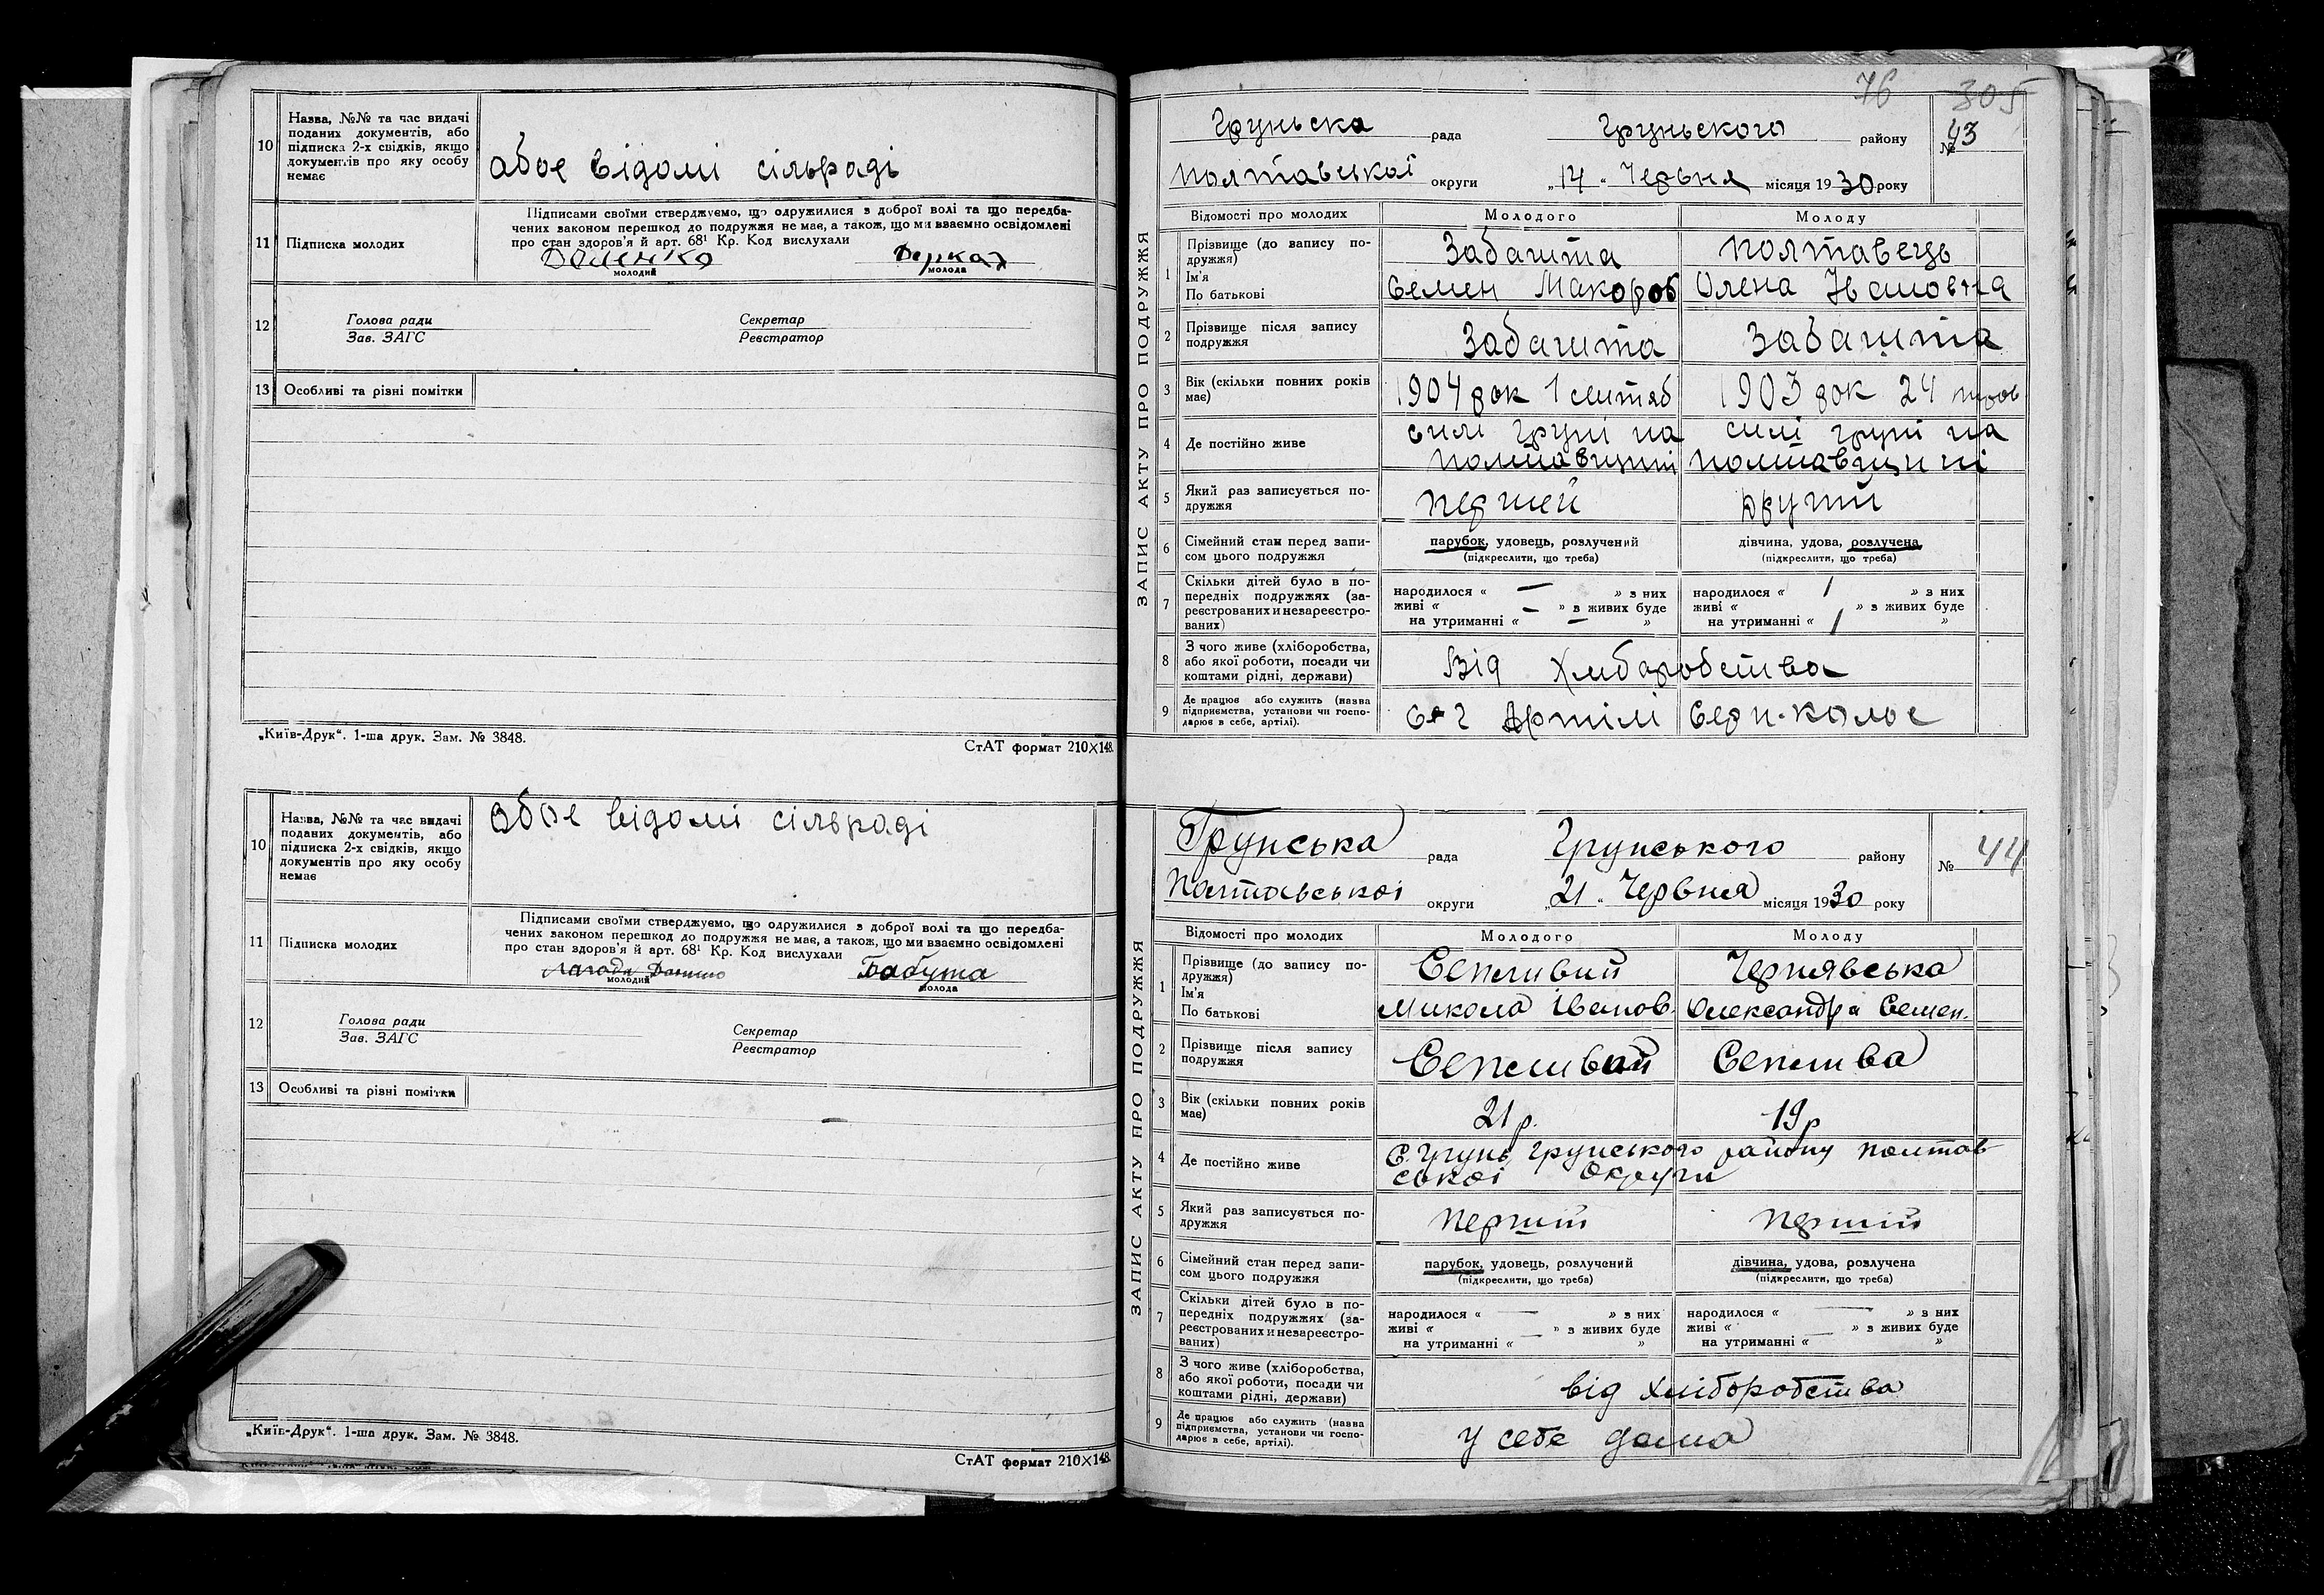 10 Назва, №№ та час видачі
поданих документів, або
підписка 2-х свідків, якщо
документів про яку особу
немає
обоє відомі сільраді
11 Підписка молодих
Підписами своїми стверджуємо, що одружилися з доброї волі та що передба-
чених законом перешкод до подружжя не має, а також, що ми взаємно освідомлені
про стан здоров'я й арт. 68¹ Кр. Код вислухали
молодий Деркач молода
12 Голова ради Секретар
Зав. ЗАГС Реєстратор
13 Особливі та різні помітки
„Київ-Друк“. 1-ша друк. Зам. № 3848. СтАТ формат 210×148.
10 Назва, №№ та час видачі
поданих документів, або
підписка 2-х свідків, якщо
документів про яку особу
немає
обоє відомі сільраді
11 Підписка молодих
Підписами своїми стверджуємо, що одружилися з доброї волі та що передба-
чених законом перешкод до подружжя не має, а також, що ми взаємно освідомлені
про стан здоров'я й арт. 68¹ Кр. Код вислухали
Лагода Данило Бабута
молодий молода
12 Голова ради Секретар
Зав. ЗАГС Реєстратор
13 Особливі та різні помітки
„Київ-Друк“. 1-ша друк. Зам. № 3848.
СтАТ формат 210×148.
76 305
Груньска рада Груньского району № 43
Полтавської округи „14“ Червня місяця 1930 року
ЗАПИС АКТУ ПРО ПОДРУЖЖЯ
Відомості про молодих Молодого Молоду
1 Прізвище (до запису по-
дружжя) Забашта Полтавець
Ім'я
По батькові Семен Макаров Олена Івановна
2 Прізвище після запису
подружжя Забашта Забашта
3 Вік (скільки повних років
має) 1904 рок 1 1903 рок 24
4 Де постійно живе селі Груні на селі Груні на
Полтавщині Полтавщині
5 Який раз записується по-
дружжя першей другий
6 Сімейний стан перед запи-
сом цього подружжя парубок, удовець, розлучений дівчина, удова, розлучена
(підкреслити, що треба) (підкреслити, що треба)
7 Скільки дітей було в по-
передніх подружжях (за-
реєстрованих и незареєстро-
ваних)
народилося « — » з них народилося « / » з них
живі « — » з живих буде живі « » з живих буде
на утриманні « — » на утриманні « / »
8 З чого живе (хліборобства,
або якої роботи, посади чи
коштами рідні, держави) Від Хліборобства
9 Де працює або служить (назва
підприємства, установи чи госпо-
дарює в себе, артілі). Артілі Серп-колос
Грунська рада Грунського району № 44
Полтавської округи „21“ Червня місяця 1930 року
ЗАПИС АКТУ ПРО ПОДРУЖЖЯ
Відомості про молодих Молодого Молоду
1 Прізвище (до запису по-
дружжя) Сепливий Чернявська
Ім'я
По батькові Микола Іванов. Олександра Семен.
2 Прізвище після запису
подружжя Сепливий Сеплива
3 Вік (скільки повних років
має) 21 р. 19 р
4 Де постійно живе С. Грунь Грунського району Полтав
ської Округи
5 Який раз записується по-
дружжя перший перший
6 Сімейний стан перед запи-
сом цього подружжя парубок, удовець, розлучений дівчина, удова, розлучена
(підкреслити, що треба) (підкреслити, що треба)
7 Скільки дітей було в по-
передніх подружжях (за-
реєстрованих и незареєстро-
ваних)
народилося « — » з них народилося « — » з них
живі « » з живих буде живі « » з живих буде
на утриманні « — » на утриманні « — »
8 З чого живе (хліборобства,
або якої роботи, посади чи
коштами рідні, держави) від хліборобства
9 Де працює або служить (назва
підприємства, установи чи госпо-
дарює в себе, артілі). у себе дома